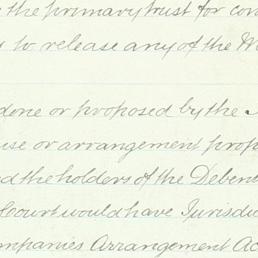 the primary trust for con
to release any of the W
done or proposed by the
use or arrangement prop
d the holders of the Deben
Court would have Jurisdic
ompanies Arrangement Ac